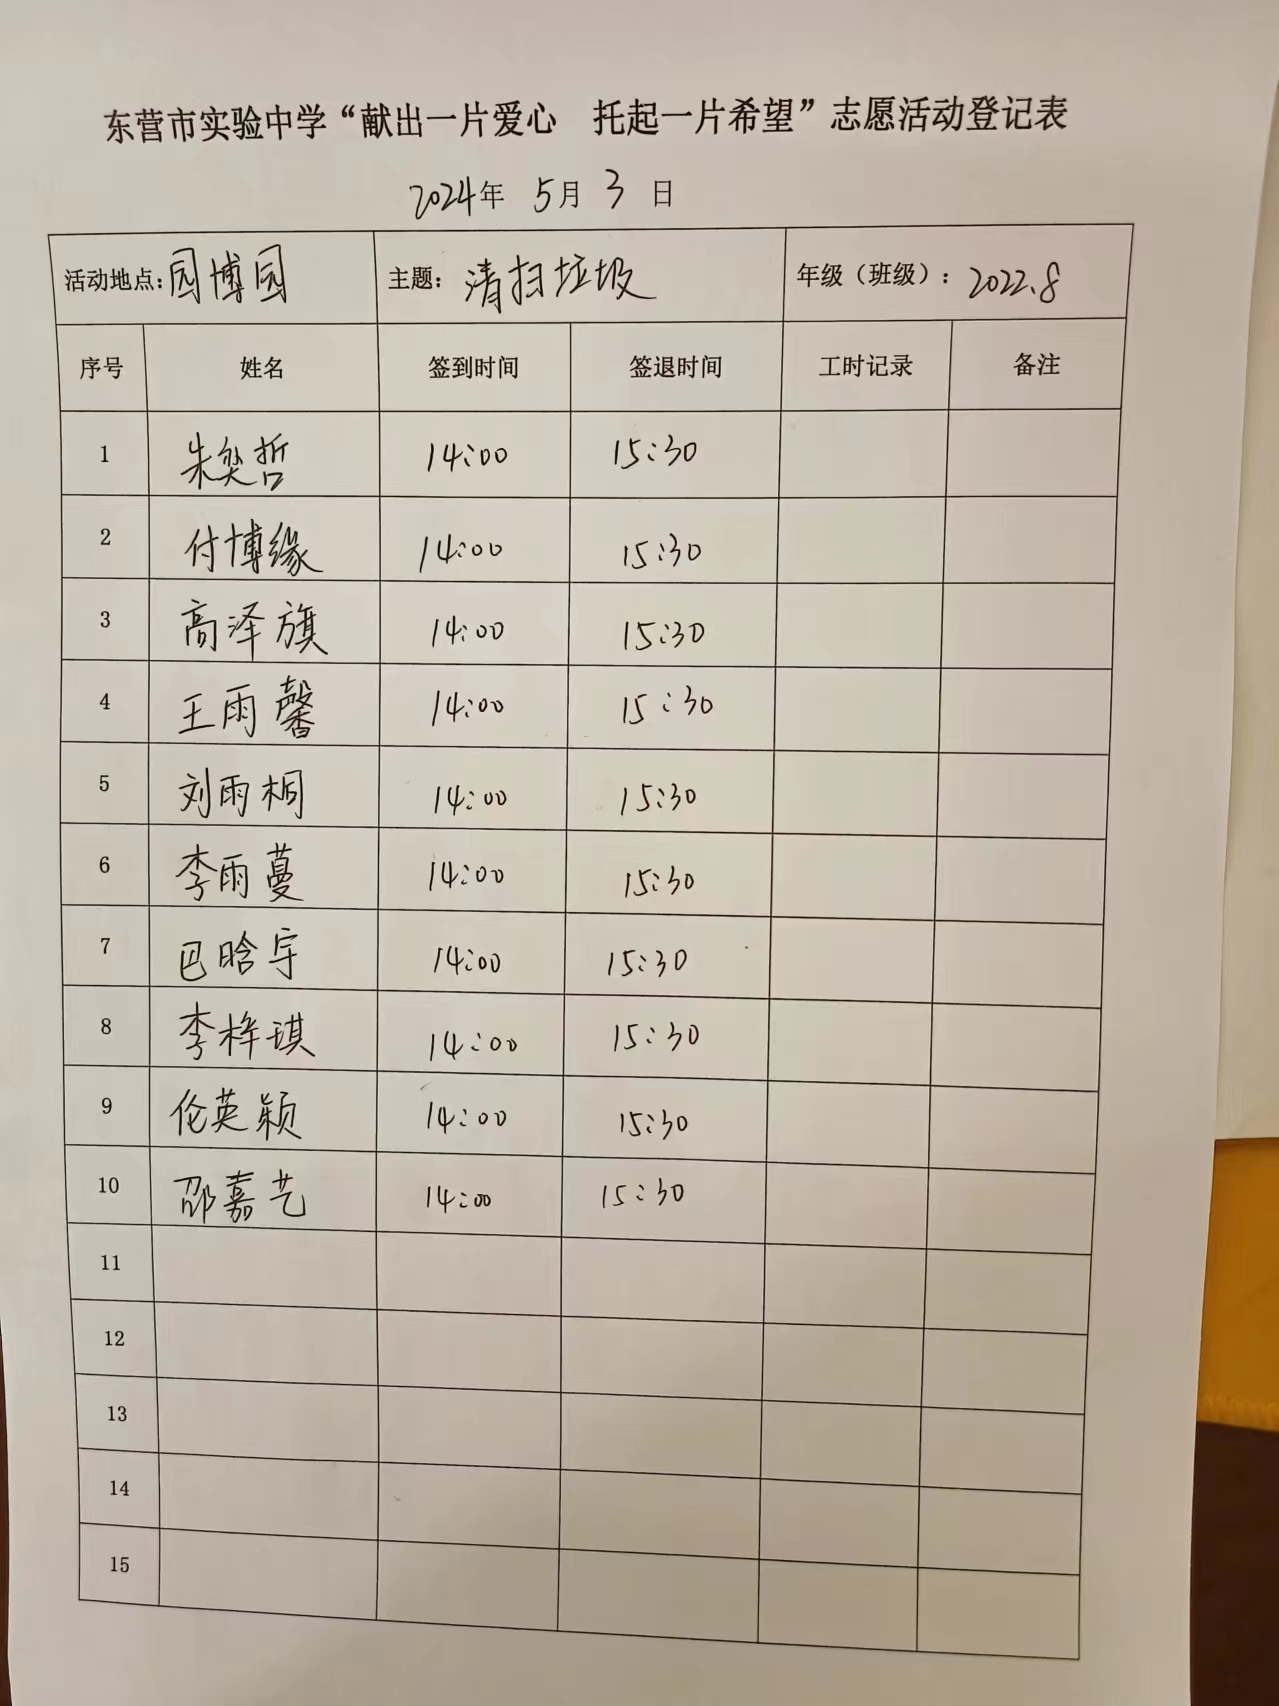 东营市实验中学“献出一片爱心 托起一片希望”志愿活动登记表
2024年 5月 3 日
活动地点:园博园 主题:清扫垃圾 年级（班级）:2022.8
序号 姓名 签到时间 签退时间 工时记录 备注
1 朱奕哲 14:00 15:30
2 付博缘 14:00 15:30
3 高泽旗 14:00 15:30
4 王雨馨 14:00 15:30
5 刘雨桐 14:00 15:30
6 李雨蔓 14:00 15:30
7 巴晗宇 14:00 15:30
8 李梓琪 14:00 15:30
9 伦英颖 14:00 15:30
10 邵嘉艺 14:00 15:30
11
12
13
14
15